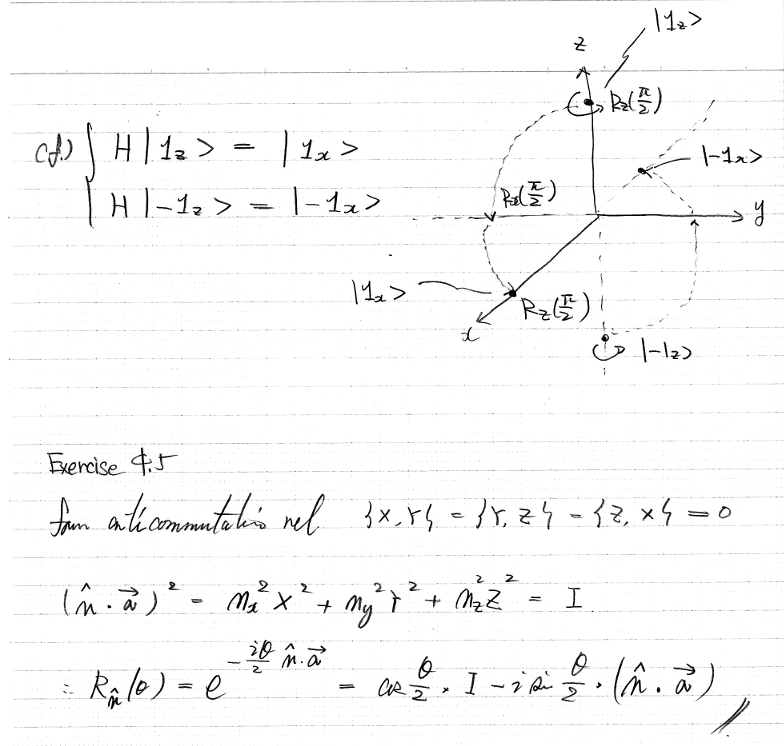 |1z>
z
Rz(π/2)
cf.) { H |1z> = |1x>
|-1x>
H |-1z> = |-1x>
Rx(π/2)
y
|1x>
Rz(π/2)
x
|-1z>
Exercise 4.5
from anticommutation rel {X, Y} = {Y, Z} = {Z, X} = 0
(n̂ · σ⃗)² = nx² X² + ny² Y² + nz² Z² = I
∴ Rn̂(θ) = e^(-iθ/2 n̂·σ⃗) = cos θ/2 · I - i sin θ/2 · (n̂ · σ⃗)